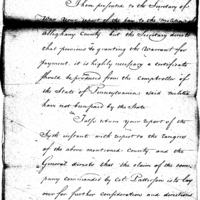 I have presented to the Secretary of
War your report of the pay to the militia of
Alleghany County but the Secretary directs
that previous to granting the Warrant for
payment, it is highly necessary a certificate
should be produced from the Comptroller of
the State of Pennsylvania said militia
has not been paid by the State
I also return your report of the
instant with respect to the Rangers
of the above mentioned County and the
General directs that the claim of the com-
pany commanded by Cat. Patterson is to lay
over for further consideration and directions